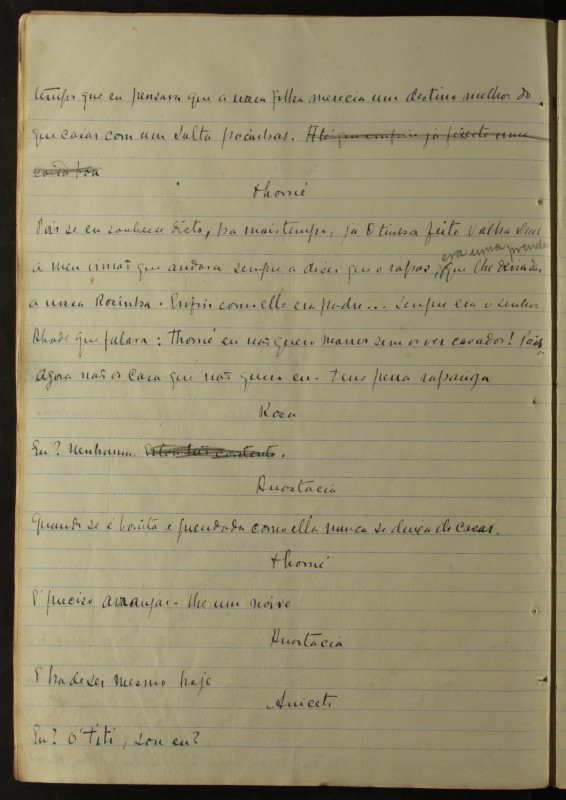 tempo que eu pensava que a nossa filha merecia um destino melhor do
que casar com um salta pocinhas. Até que emfim já fizeste uma
coisa boa
Thomé
Pois se eu soubesse disto, ha mais tempo, já o tinha feito valha Deus
era uma prenda
a meu irmão que andava sempre a dizer que o rapaz, que lhe deixadas
a nossa Rosinha. Emfim como elle era padre... Sempre era o senhor
Abade que falava: Thomé eu não quero morrer sem os ver casados! Pois
agora não os casa que não quero eu. Tens pena rapariga
Roza
Eu? Nenhuma. Estou tão contente.
Anastacia
Quando se é bonita e prendada como ella nunca se deixa de casar.
Thomé
É preciso arranjar-lhe um noivo
Anastacia
E hade ser mesmo hoje
Aniceto
Eu? O' Titi, sou eu?